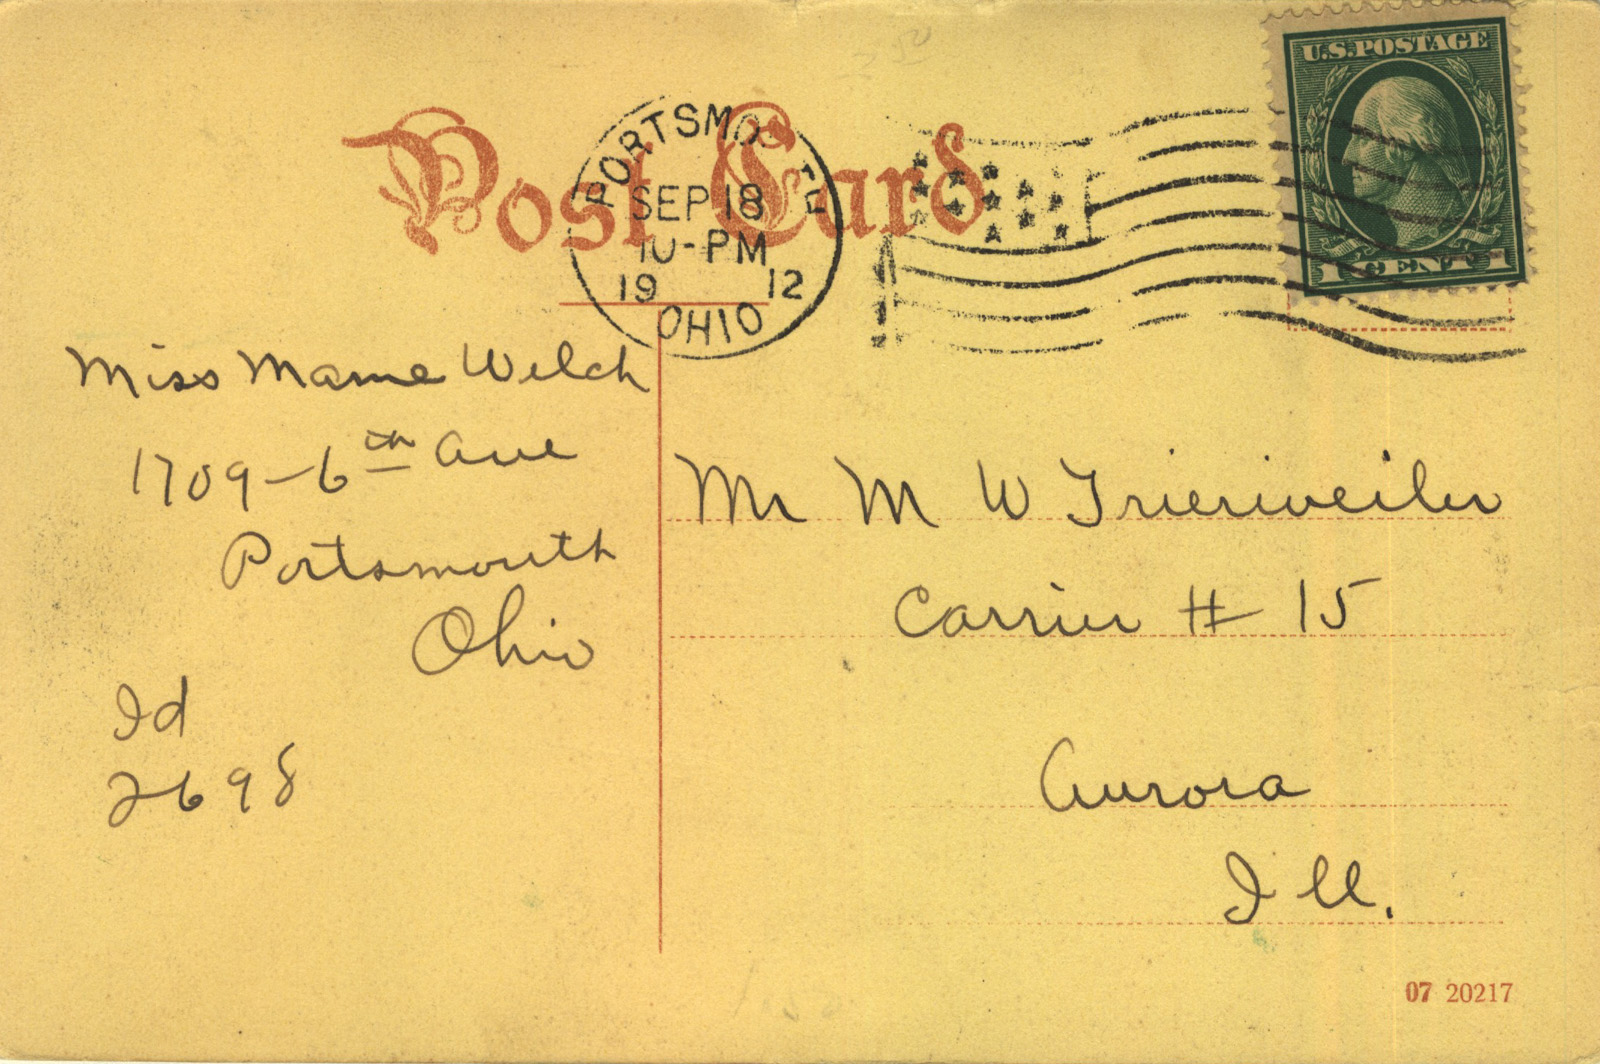 U.S. POSTAGE
1 CENT 1
Post Card
PORTSMOUTH
SEP 18
10-PM
19 12
OHIO
Miss Mame Welch
1709-6th Ave
Portsmouth
Ohio
Id
2698
Mr M W Trierweiler
Carrier # 15
Aurora
Ill.
07 20217